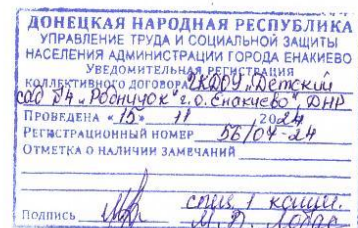 ДОНЕЦКАЯ НАРОДНАЯ РЕСПУБЛИКА
УПРАВЛЕНИЕ ТРУДА И СОЦИАЛЬНОЙ ЗАЩИТЫ
НАСЕЛЕНИЯ АДМИНИСТРАЦИИ ГОРОДА ЕНАКИЕВО
УВЕДОМИТЕЛЬНАЯ РЕГИСТРАЦИЯ
КОЛЛЕКТИВНОГО ДОГОВОРА ГКДОУ „Детский
сад №4 „Родничок" г.о. Енакиево", ДНР
ПРОВЕДЕНА «15» 11 2024
РЕГИСТРАЦИОННЫЙ НОМЕР 56/04-24
ОТМЕТКА О НАЛИЧИИ ЗАМЕЧАНИЙ
спец. 1 катег.
ПОДПИСЬ М.В.